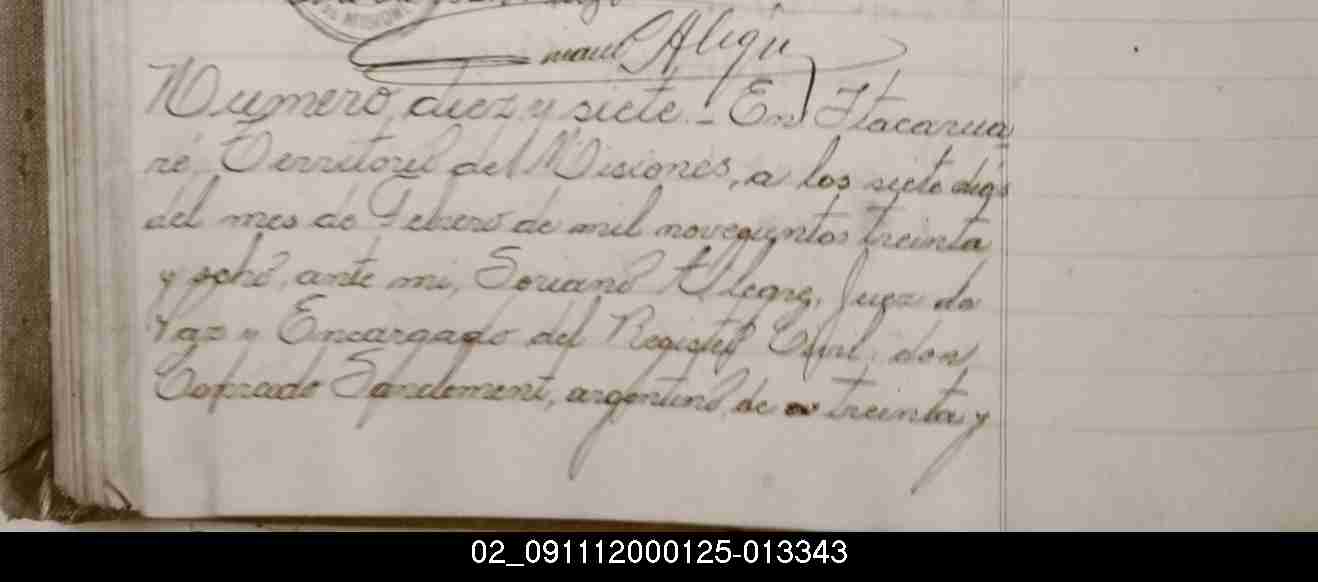 MISIONE
Alegre
Numero, diez y siete. - En Itacarua
ré, Territorio del Misiones, a los siete dias
del mes de Febrero de mil novecientos treinta
y ocho, ante mi, Soriano Alegre, Juez de
Paz y Encargado del Registro Civil, don
argentino, de treinta y
02_091112000125-013343